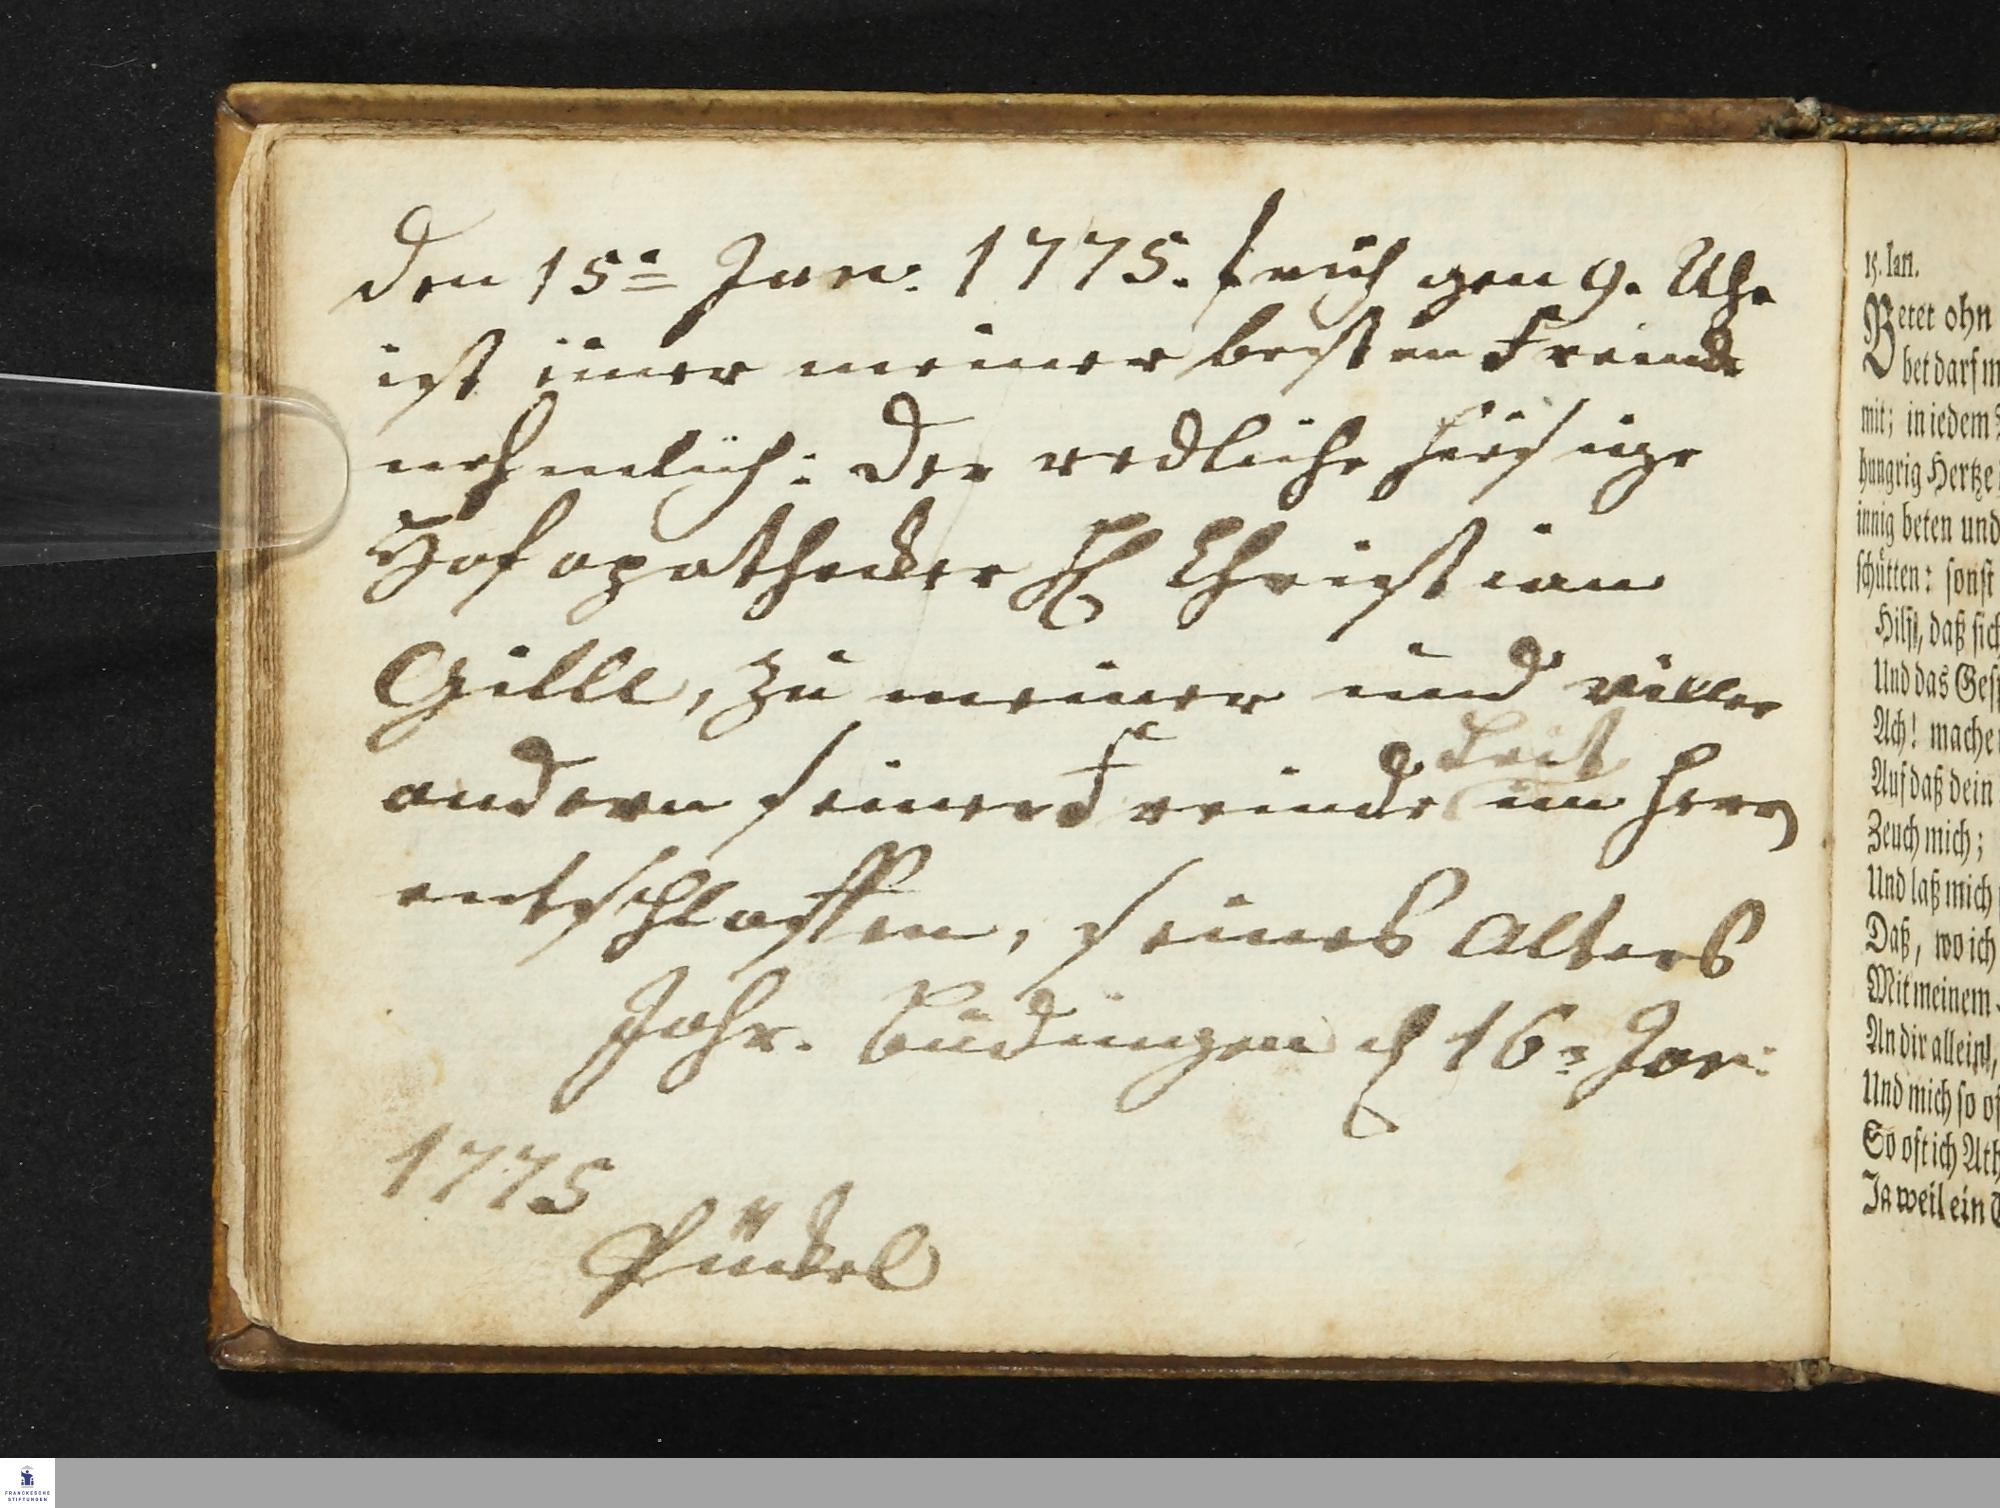 den 15n Jan: 1775. früh gen 9. Uhr
ist einer meiner besten Freinde
nehmlich: der redliche hiesige
Hofapothecker H Christian
Gille, zu meiner und viller
andern seiner Freinde Leit im Herrn
entschlaffen, seines Alters
Jahr. Büdingen d 16n Jan:
1775
Pückel
15. Jan.
Betet ohn
bet darf m
mit; in iedem
hungrig Hertze
innig beten und
schütten: sonst
Hilff, daß sich
Und das Gesp
Ach! mache
Auf daß dein
Zeuch mich;
Und laß mich
Daß, wo ich
Mit meinem
An dir allein,
Und mich so of
So oft ich Ath
Ja weil ein
FRANCKESCHE
STIFTUNGEN